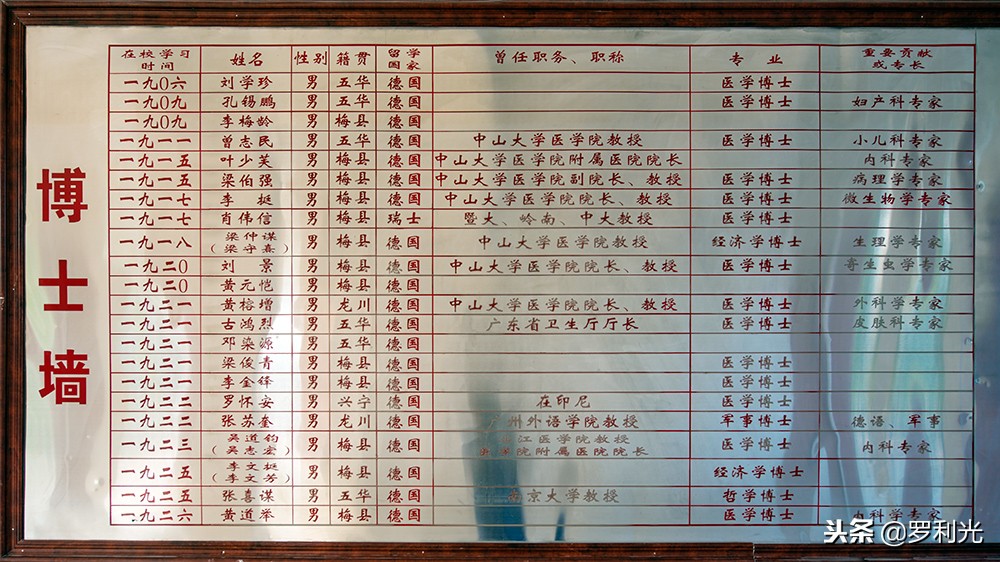 博士墙
在校学习时间 姓名 性别 籍贯 留学国家 曾任职务、职称 专业 重要贡献或专长
一九0六 刘学珍 男 五华 德国 医学博士
一九0九 孔锡鹏 男 五华 德国 医学博士 妇产科专家
一九0九 李梅龄 男 梅县 德国
一九一一 曾志民 男 五华 德国 中山大学医学院教授 医学博士 小儿科专家
一九一五 叶少芙 男 梅县 德国 中山大学医学院附属医院院长 内科专家
一九一五 梁伯强 男 梅县 德国 中山大学医学院副院长、教授 医学博士 病理学专家
一九一七 李挺 男 梅县 德国 中山大学医学院院长、教授 医学博士 微生物学专家
一九一七 肖伟信 男 梅县 瑞士 暨大、岭南、中大教授 医学博士
一九一八 梁仲谋(梁守熹) 男 梅县 德国 中山大学医学院教授 经济学博士 生理学专家
一九二0 刘景 男 梅县 德国 中山大学医学院院长、教授 医学博士 寄生虫学专家
一九二0 黄元恺 男 梅县 德国
一九二一 黄榕增 男 龙川 德国 中山大学医学院院长、教授 医学博士 外科学专家
一九二一 古鸿烈 男 五华 德国 广东省卫生厅厅长 医学博士 皮肤科专家
一九二一 邓染源 男 五华 德国
一九二一 梁俊青 男 梅县 德国 医学博士
一九二一 李金铎 男 梅县 德国 医学博士
一九二二 罗怀安 男 兴宁 德国 在印尼 医学博士
一九二二 张苏奎 男 龙川 德国 广州外语学院教授 军事博士 德语、军事
一九二三 吴道钧(吴志宏) 男 梅县 德国 江医学院教授 院附属医院院长 医学博士 内科专家
一九二五 李文挺(李文芳) 男 梅县 德国 经济学博士
一九二五 张喜谋 男 五华 德国 南京大学教授 哲学博士
一九二六 黄道举 男 梅县 德国 医学博士 内科学专家
头条@罗利光